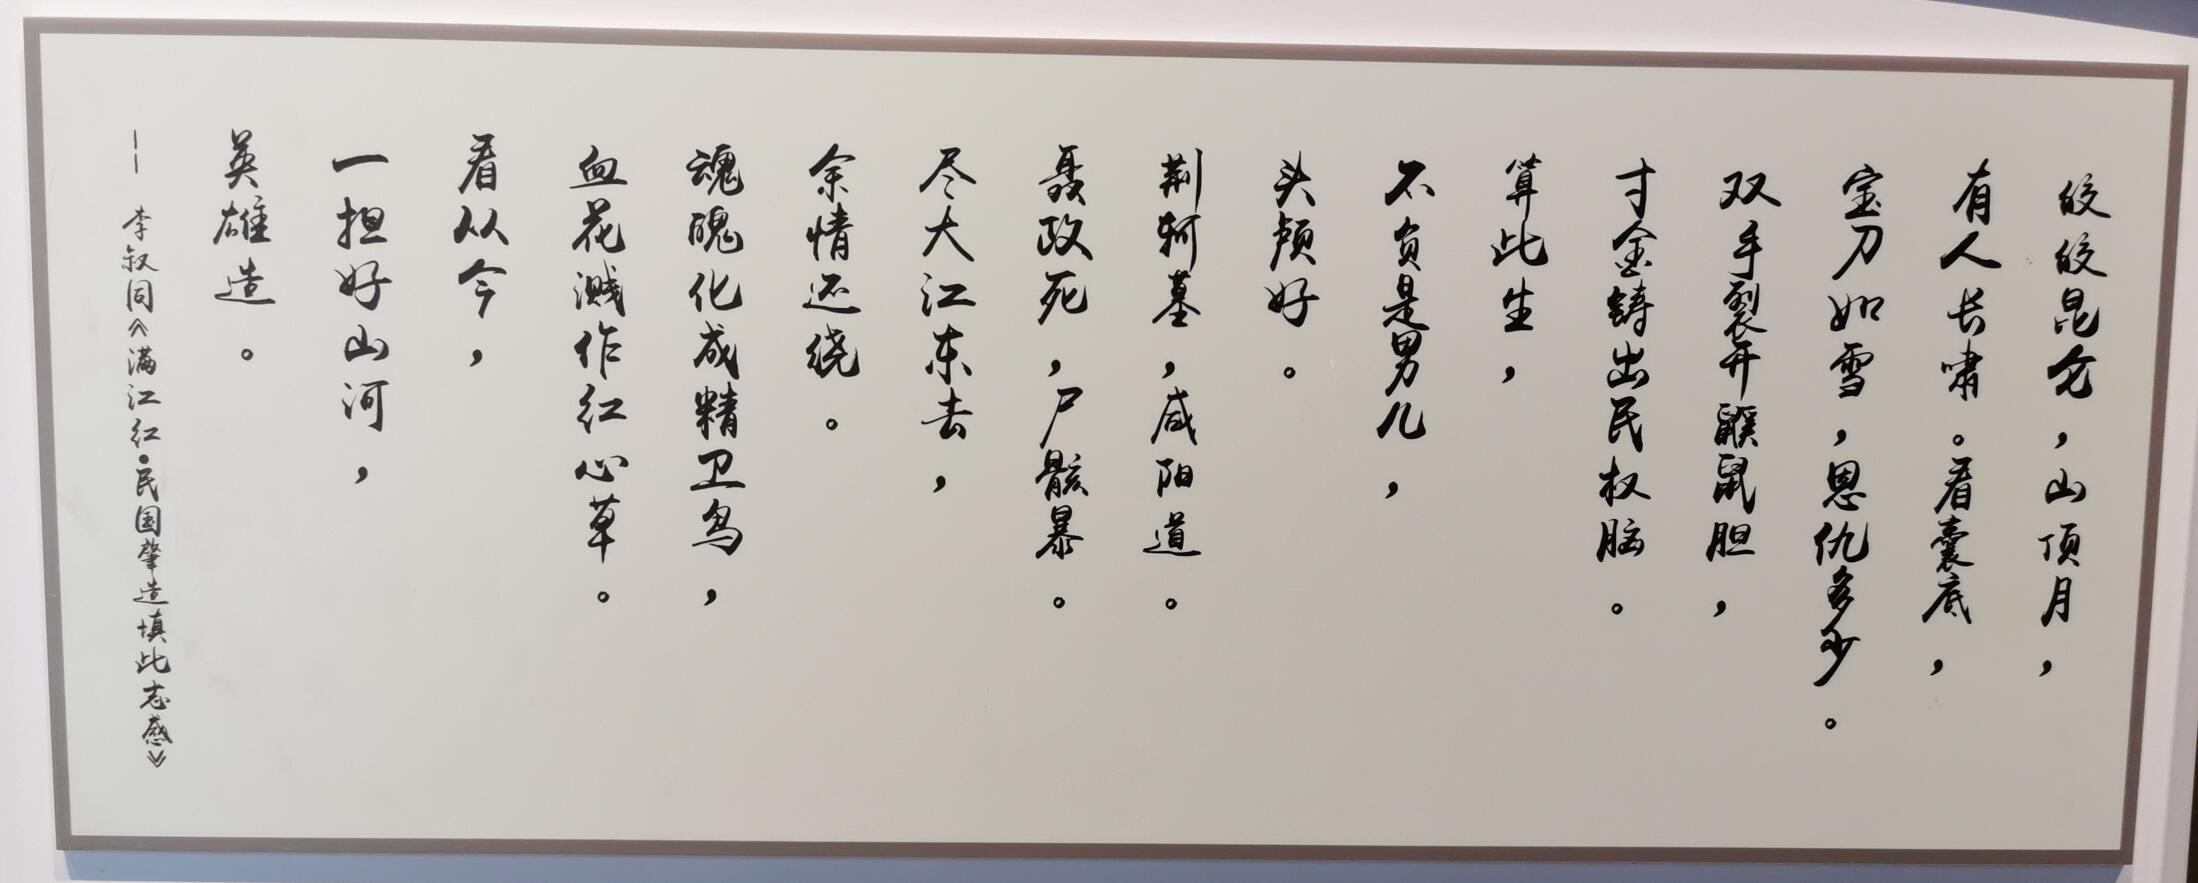 皎皎昆仑，山顶月，
有人长啸。看囊底，
宝刀如雪，恩仇多少。
双手裂开鼷鼠胆，
寸金铸出民权脑。
算此生，
不负是男儿，
头颅好。
荆轲墓，咸阳道。
聂政死，尸骸暴。
尽大江东去，
余情还绕。
魂魄化成精卫鸟，
血花溅作红心草。
看从今，
一担好山河，
英雄造。
——李叙同《满江红·民国肇造填此志感》